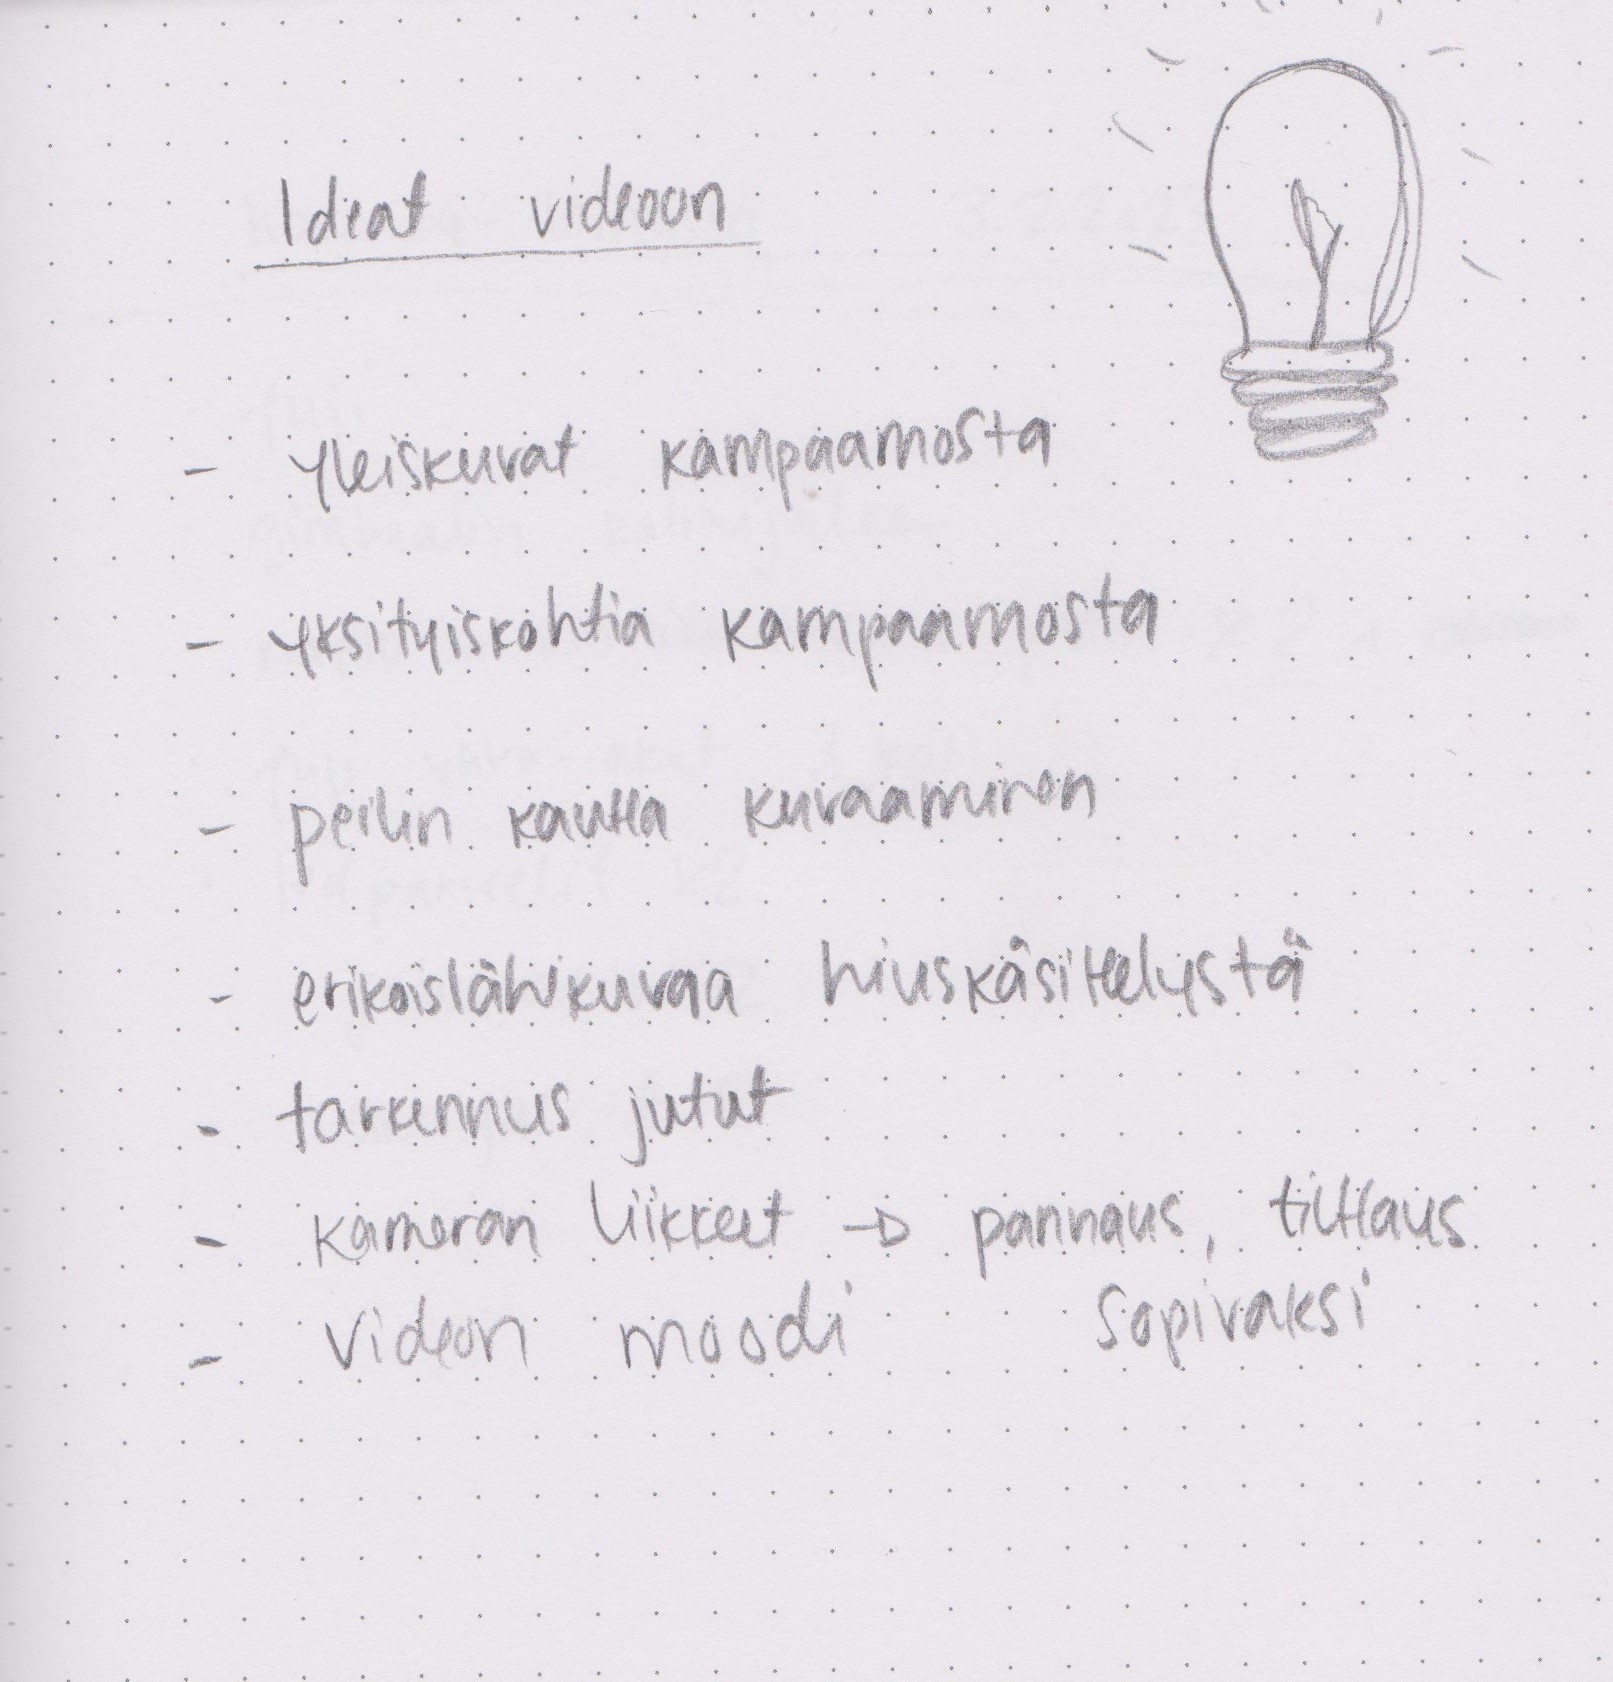 Ideat videoon
- yleiskuvat kampaamosta
- yksityiskohtia kampaamosta
- peilin kautta kuvaaminen
- erikoislähikuvaa hiuskäsittelystä
- tarkennus jutut
- kameran liikkeet → pannaus, tilttaus
- videon moodi sopivaksi